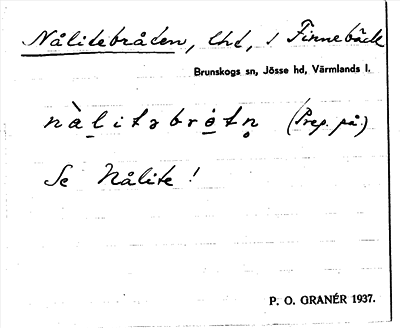 Nålitebråten, lht, i Finnebäck
Brunskogs sn, Jösse hd, Värmlands l.
nàlitəbrótn (Prep. på.)
Se Nålite!
P. O. GRANÉR 1937.